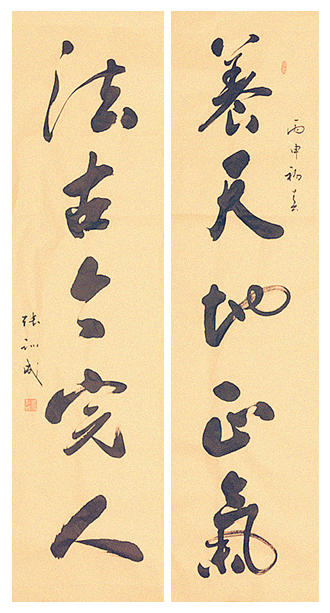 養天地正氣
丙申初
法古今完人
張訓成